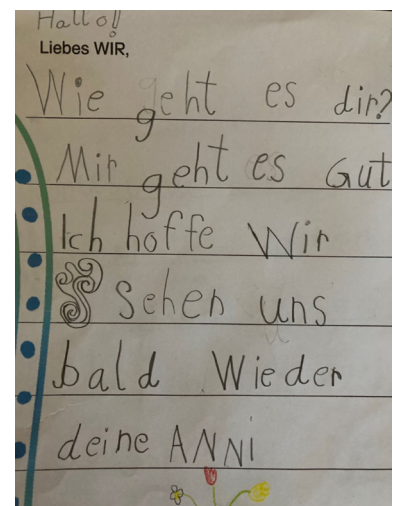 Hallo!!
Liebes WIR,
Wie geht es dir?
Mir geht es Gut
Ich hoffe Wir
sehen uns
bald Wieder
deine ANNI